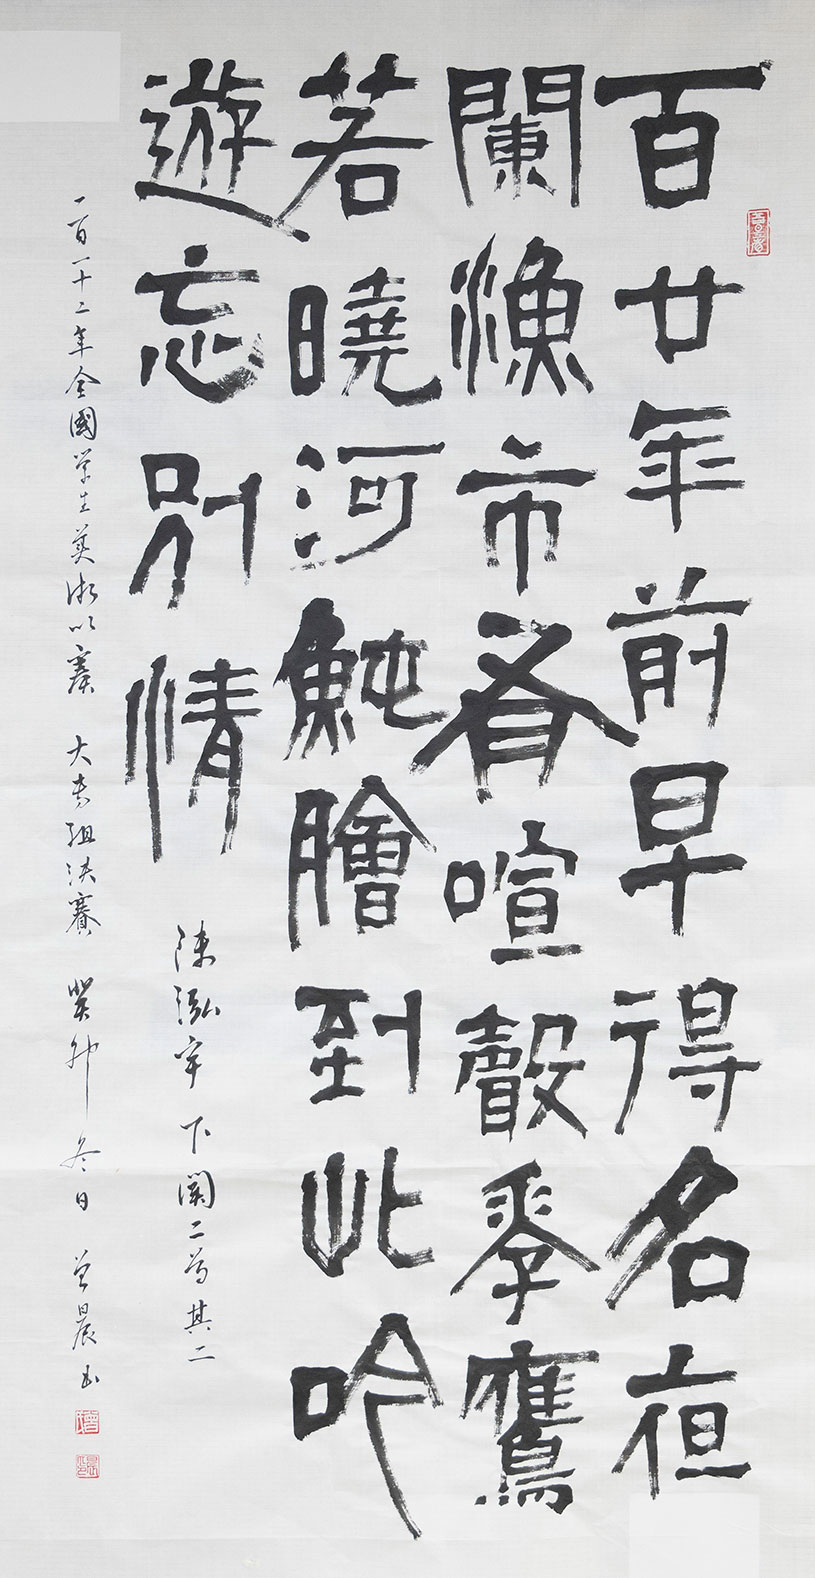 百廿年前早得名夜
闌漁市喧聲季鷹
若曉河魨膾到此吟
遊忘別情
陳泓宇 下關二首其二
一百一十二年全國學生美術比賽 大專組決賽 癸卯冬日 曾晨書